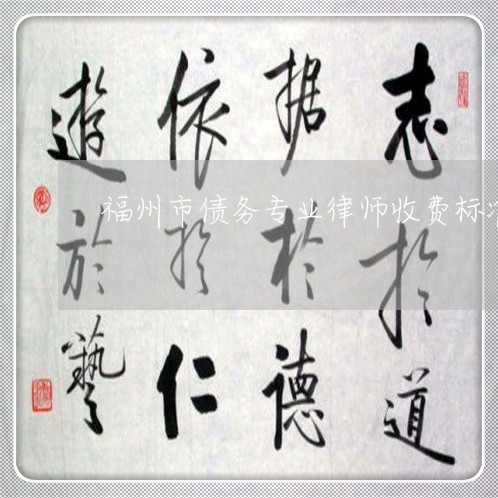 志於道
据於德
依於仁
遊於藝
福州市债务专业律师收费标